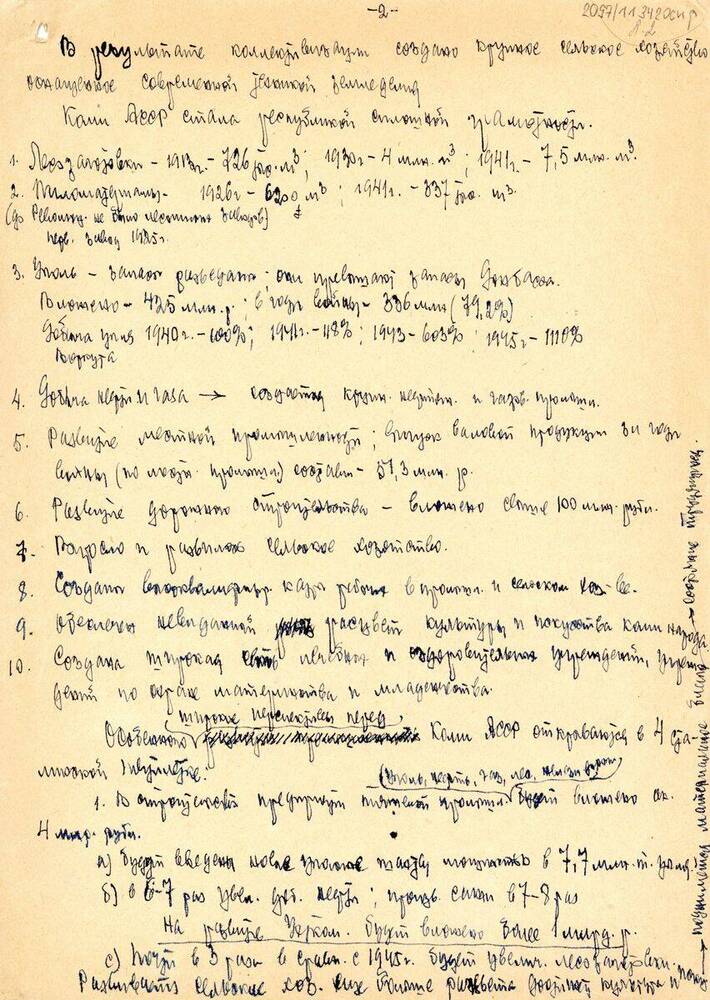 -2-
2097/11
В результате коллективизации создано крупное сельское хозяйство
оснащенное современной техникой земледелия
Коми АССР стала республикой сплошной грамотности.
1. Лесозаготовки - 1913г. - 726 тыс. м³; 1930г - 4 млн. м³; 1941г. - 7,5 млн. м³.
2. Пиломатериалы - 1926г - 6200 м³; 1941г. - 337 тыс. м³.
(до Революц. не было лесопильных заводов)
перв. завод 1925г.
3. Уголь - запасы разведаны; они превышают запасы Донбасса.
Вложено - 425 млн. р.; в годы войны - 336 млн (79,2%)
Добыча угля 1940г. - 100%; 1943 - 603%; 1945г - 1110%
Воркута
4. Добыча нефти и газа → создается крупн. нефтян. и газов. промышл.
5. Развитие местной промышленности; выпуск валовой продукции за годы
войны (по местн. промышл) составил - 51,3 млн. р.
6. Развитие дорожного строительства - вложено свыше 100 млн. рубл.
7. Выросло и развилось сельское хозяйство.
8. Созданы высококвалифицир. кадры рабочих в промышл. и сельском хоз-ве.
9. Обеспечен невиданный расцвет культуры и искусства коми народа
10. Создана широкая сеть лечебных и оздоровительных учреждений, учреж
дений по охране материнства и младенчества.
широкие перспективы перед
Особенно Коми АССР открываются в 4 ста-
линской пятилетке:
(уголь, нефть, газ, лес,
1. В строительство предприят тяжелой промышл. будет вложено ок.
4 млр. рубл.
а) будут введены новые угольные шахты мощностью в 7,7 млн. т. угля.
б) в 6-7 раз увел. доб. нефти; произв. сажи в 7-8 раз
На развитие Ухтком. будет вложено более 1 милрд. р.
с) Почти в 3 раза в сравн. с 1945г. будет увелич. лесозаготовки.
Развивать сельское хоз. еще больше расцвета достигнет культура и
→ поднимется материальное благо →